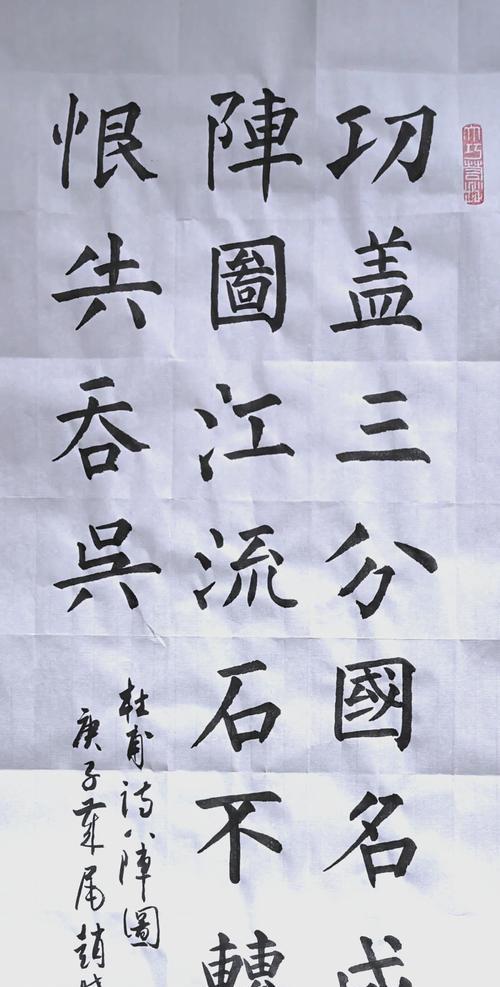 功盖三分國名成
陣圖江流石不轉
恨失吞吳
杜甫詩八陣圖
庚子歲尾趙